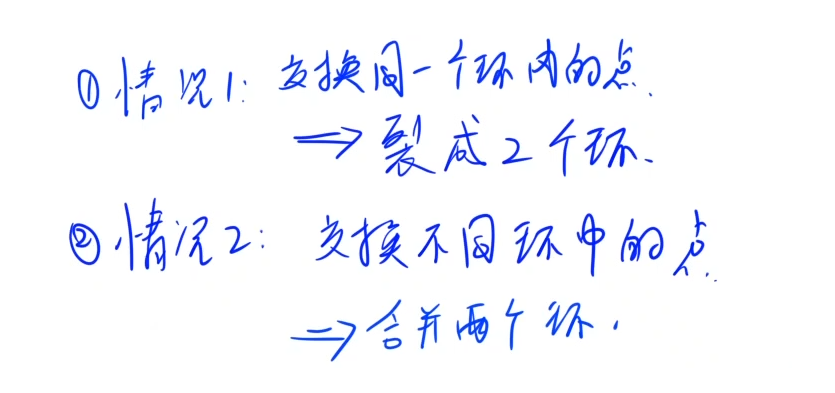 ①情况1：交换同一个环内的点.
⇒ 裂成2个环.
②情况2：交换不同环中的点..
⇒合并两个环.